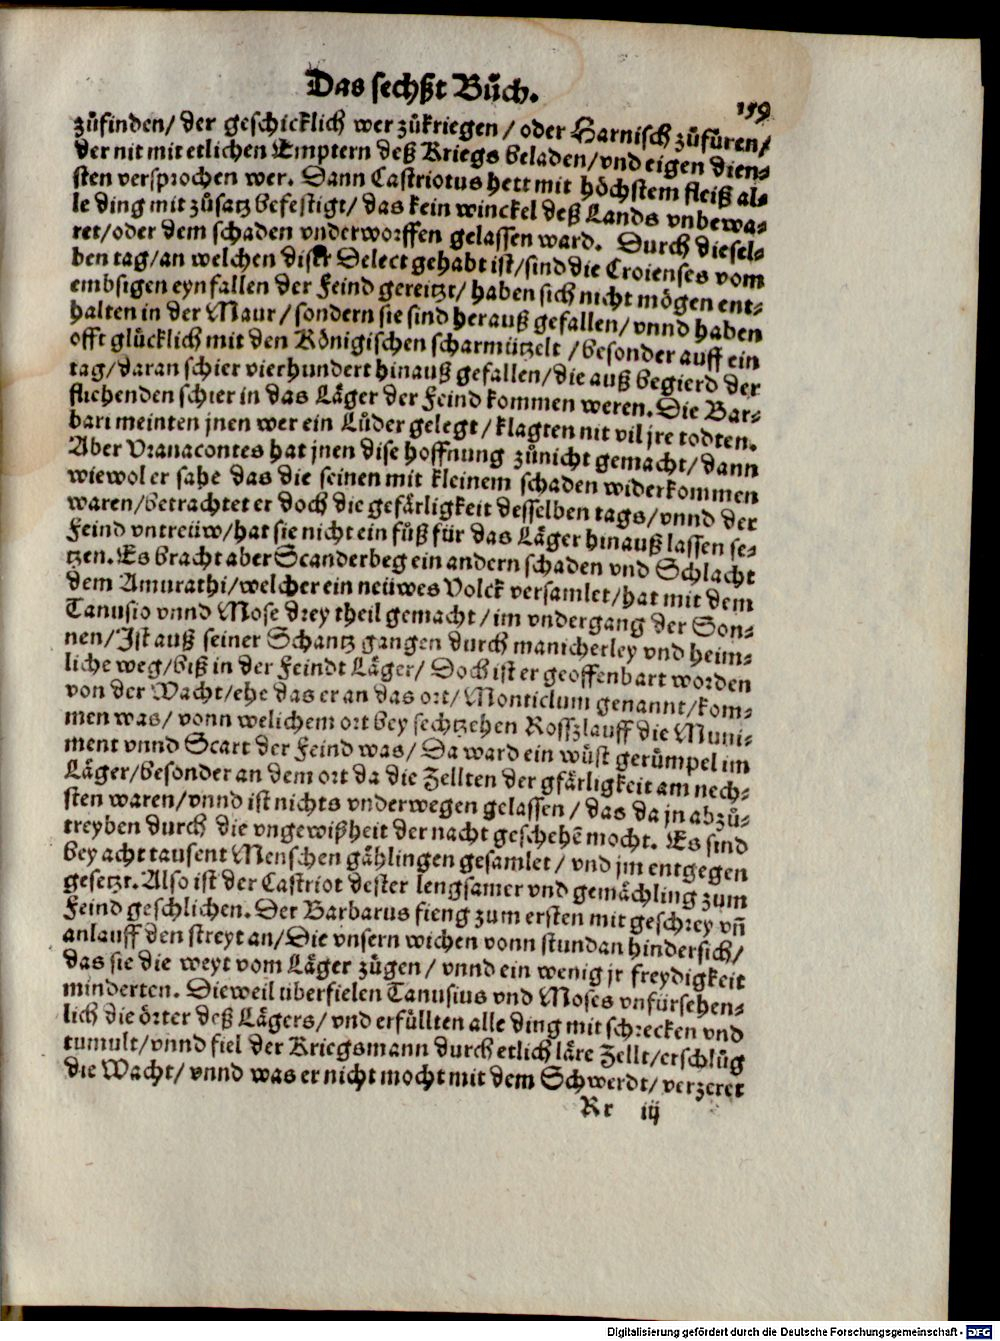 Das sechßt Bůch.
159
zůfinden/ der geschicklich wer zůkriegen / oder Harnisch zůfůren/
der nit mit etlichen Emptern deß Kriegs beladen/vnd eigen dien⸗
sten versprochen wer. Dann Castriotus hett mit höchstem fleiß al⸗
le ding mit zůsatz befestigt/ das kein winckel deß Lands vnbewa⸗
ret/oder dem schaden vnderworffen gelassen ward. Durch diesel⸗
ben tag/an welchen diser Delect gehabt ist/sind die Croienses vom
embsigen eynfallen der Feind gereitzt/ haben sich nicht mögen ent⸗
halten in der Maur / sondern sie sind herauß gefallen/ vnnd haben
offt glücklich mit den Königischen scharmützelt / besonder auff ein
tag/daran schier vierhundert hinauß gefallen/die auß begierd der
fliehenden schier in das Läger der Feind kommen weren. Die Bar⸗
bari meinten jnen wer ein Lůder gelegt / klagten nit vil jre todten.
Aber Vranacontes hat jnen dise hoffnung zůnicht gemacht/ dann
wiewol er sahe das die seinen mit kleinem schaden widerkommen
waren/betrachtet er doch die gefärligkeit desselben tags/ vnnd der
Feind vntreüw/hat sie nicht ein fůß für das Läger hinauß lassen se⸗
tzen. Es bracht aber Scanderbeg ein andern schaden vnd Schlacht
dem Amurathi/welcher ein neüwes Volck versamlet/hat mit dem
Tanusio vnnd Mose drey theil gemacht / im vndergang der Son⸗
nen/Ist auß seiner Schantz gangen durch manicherley vnd heim⸗
liche weg/biß in der Feindt Läger/ Doch ist er geoffenbart worden
von der Wacht/ehe das er an das ort/ Monticlum genannt/kom⸗
men was/ vonn welichem ort bey sechtzehen Rosszlauff die Muni⸗
ment vnnd Scart der Feind was/ Da ward ein wüst gerümpel im
Läger/besonder an dem ort da die Zellten der gfärligkeit am nech⸗
sten waren/vnnd ist nichts vnderwegen gelassen / das da jn abzů⸗
treyben durch die vngewißheit der nacht geschehē mocht. Es sind
bey acht tausent Menschen gählingen gesamlet / vnd jm entgegen
gesetzt. Also ist der Castriot dester lengsamer vnd gemächling zum
Feind geschlichen. Der Barbarus fieng zum ersten mit geschrey vn̄
anlauff den streyt an/Die vnsern wichen vonn stundan hindersich/
das sie die weyt vom Läger zůgen / vnnd ein wenig jr freydigkeit
minderten. Dieweil überfielen Tanusius vnd Moses vnfürsehen⸗
lich die örter deß Lägers/ vnd erfüllten alle ding mit schrecken vnd
tumult/vnnd fiel der Kriegsmann durch etlich läre Zellt/erschlůg
die Wacht/ vnnd was er nicht mocht mit dem Schwerdt/ verzeret
Rr iij
Digitalisierung gefördert durch die Deutsche Forschungsgemeinschaft - DFG